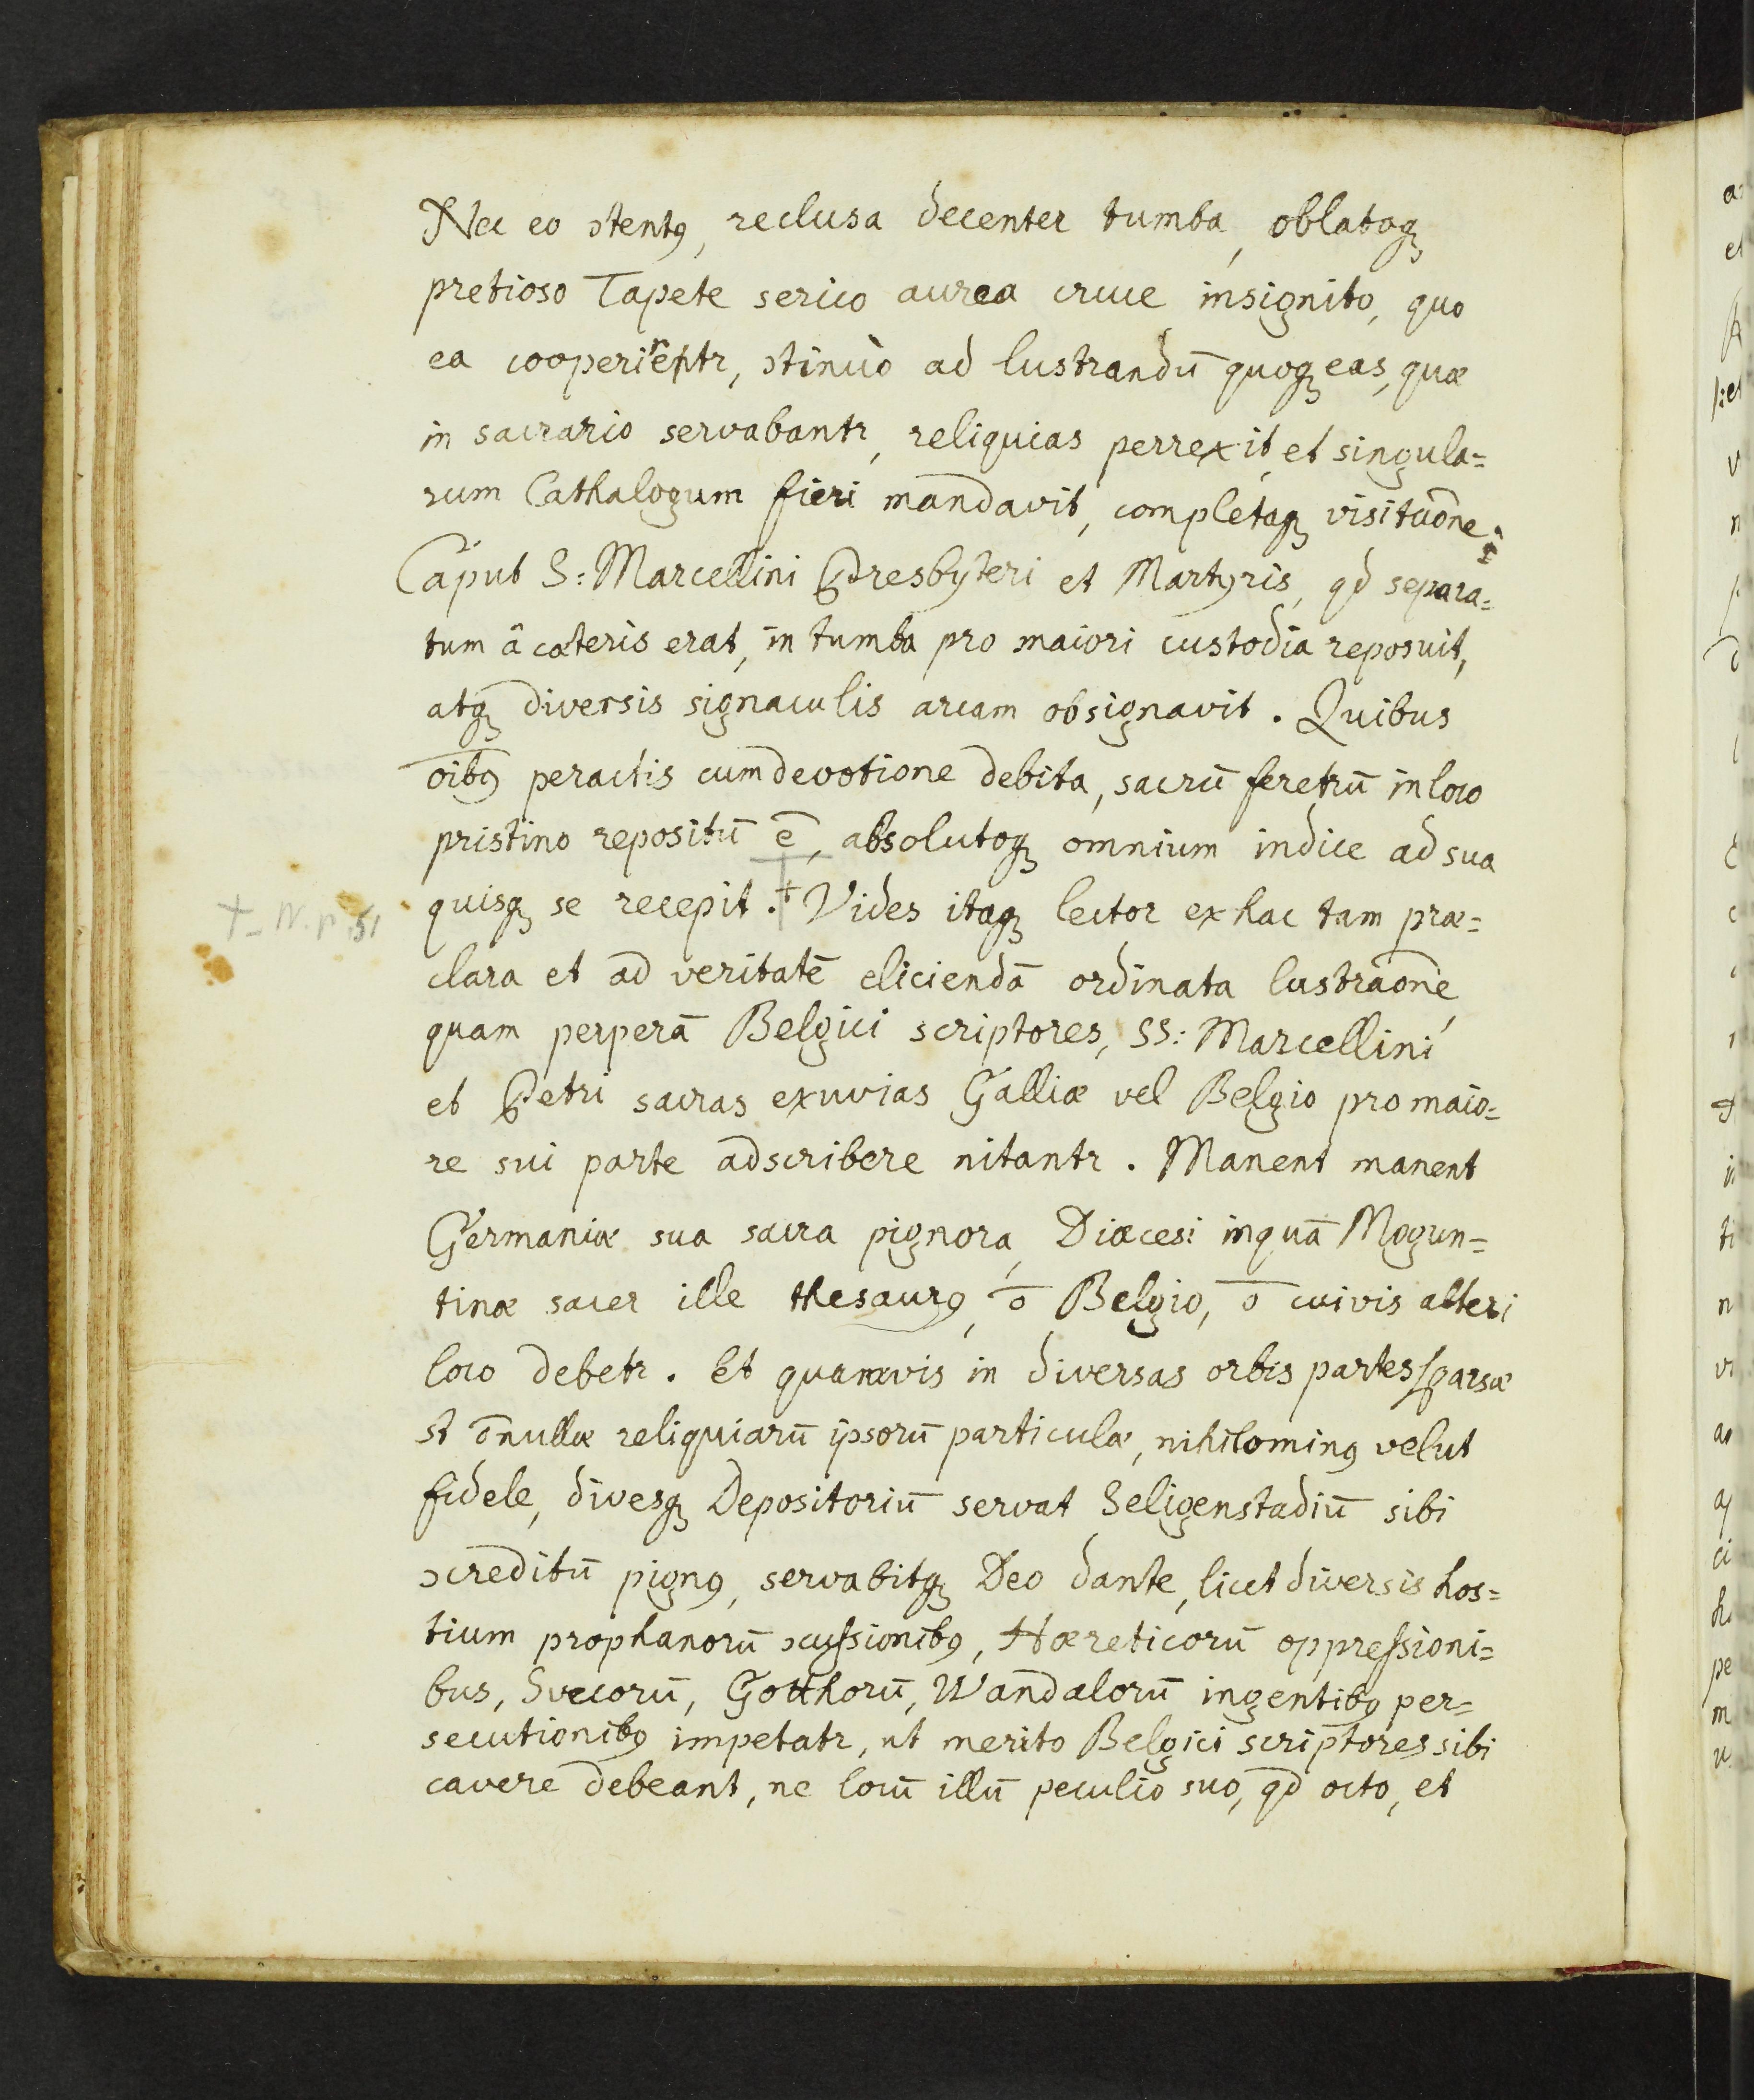 Nec eo ɔtentꝰ, reclusa decenter tumba, oblatoqꝫ
pretioso Tapete serico aurea cruce insignito, quo
ea cooperirentr, ɔtinuò ad lustrandū quoqꝫ eas, quæ
in sacrario servabantr, reliquias perrexit, et singula=
rum Cathalogum fieri mandavit, completaqꝫ visituōne
Caput S: Marcellini Presbyteri et Martyris, qd separa=
tum â cæteris erat, in tumba pro maiori custodia reposuit,
atqꝫ diversis signaculis arcam obsignavit. Quibus
oībꝰ peractis cum devotione debita, sacrū feretrū in loco
pristino repositū ē, absolutoqꝫ omnium indice ad sua
quisqꝫ se recepit. + Vides itaqꝫ lector ex hac tam præ=
+ N. p. 51
clara et ad veritatē eliciendā ordinata lustraōne,
quam perperā Belgici scriptores, SS: Marcellini
et Petri sacras exuvias Galliæ vel Belgio pro maio=
re sui parte adscribere nitantr. Manent manent
Germaniæ sua sacra pignora, Diæcesi inquā Mogun=
tinæ sacer ille thesaurꝰ, ō Belgio, ō cuivis alteri
loco debetr. Et quamvis in diversas orbis partes sparsæ
st ōnullæ reliquiarū ipsorū particulæ, nihilominꝰ velut
fidele, divesqꝫ Depositoriū servat Seligenstadiū sibi
ɔcreditū pignꝰ, servabitqꝫ Deo dante, licet diversis hos=
tium prophanorū ɔcussionibꝰ, Hæreticorū oppressioni=
bus, Svecorū, Gotthorū, Wandalorū ingentibꝰ per=
secutionibꝰ impetatr, ut merito Belgici scriptores sibi
cavere debeant, ne locū illū peculio suo, qd octo, et